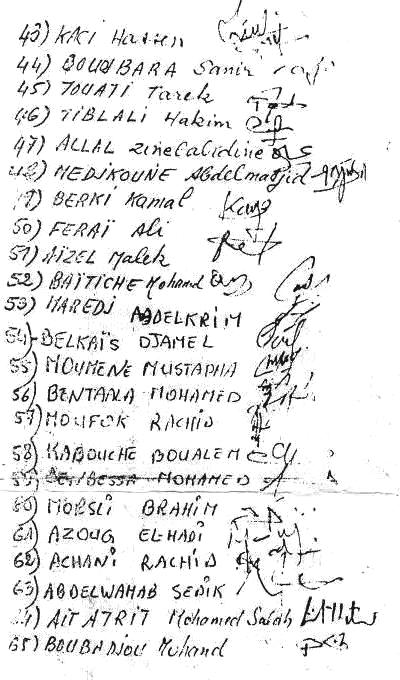 43) KACI Hassen
44) BOUDBARA Samir
45) TOUATI Tarek
46) TIBLALI Hakim
47) ALLAL Zinelabidine
48) MEDJKOUNE Abdelmadjid
49) BERKI Kamal
50) FERAÏ Ali
51) AIZEL Malek
52) BAÏTICHE Mohand
53) HAREDJ ABDELKRIM
54- BELKAÏS DJAMEL
55) MOUMENE MUSTAPHA
56) BENTAALA MOHAMED
57) MOUFOK RACHID
58) KABOUCHE BOUALEM
59) BENBESSA MOHAMED
60) MORSLI BRAHIM
61) AZOUG ELHADI
62) ACHANI RACHID
63) ABDELWAHAB SEDIK
64) AIT ATRIT Mohamed Salah
65) BOUBADJOU Muhand